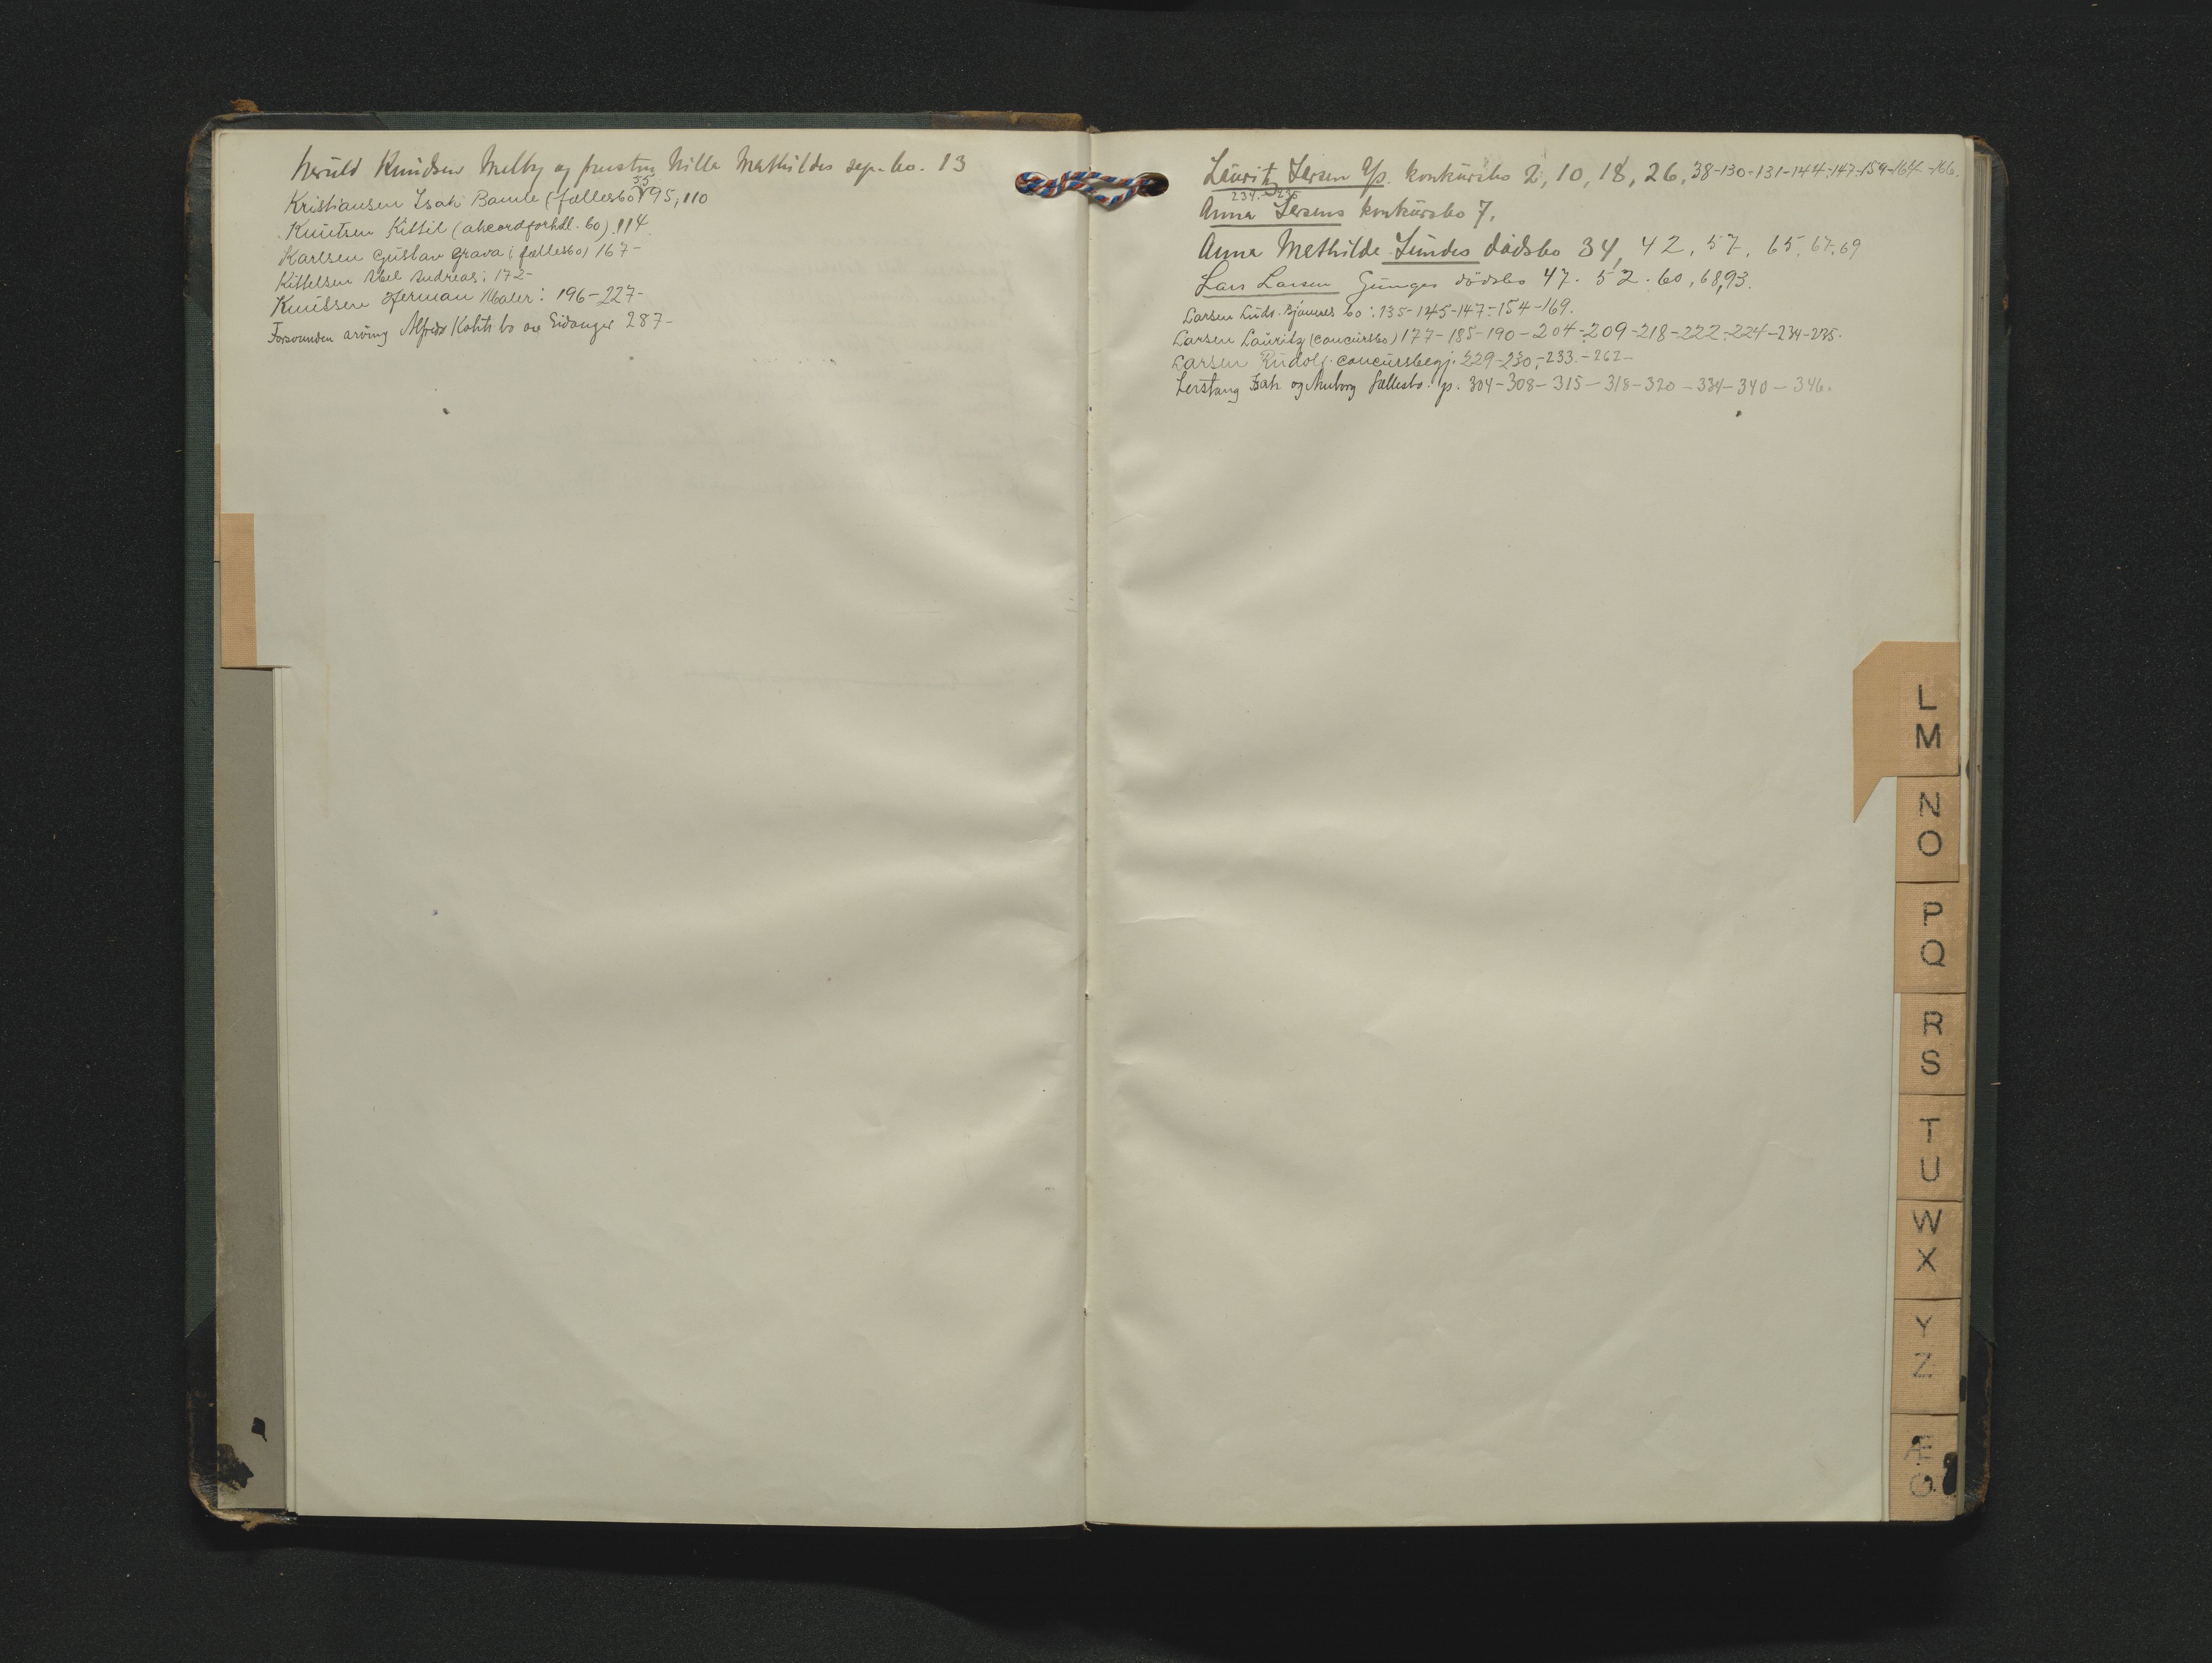 Heruld Knudsen Melby og hustru Hilla Mathildes sep. bo. 13
55
Kristiansen Isak Bamle (fællesbo) 95, 110
Knutsen Kittil (akcordforhdl. bo). 114.
Karlsen Gustav Grava (fællesbo) 167-
Kittelsen Abel Andreas: 172-
Knutsen Herman Maler: 196-227-
Forsvunden arving Alfred Kohts bo av Eidanger 287-
Lauritz Larsen A/S. konkursbo 2, 10, 18, 26, 38-130-131-144-147-159-164-166.
234.-235
Anna Larsens konkursbo 7.
Anna Mathilde Lundes dødsbo 34, 42, 57, 65, 67, 69
Lars Larsen Gunges dödsbo 47. 52. 60, 68, 93.
Larsen Ludv. Bjarnes bo: 135-145-147-154-169.
Larsen Lauritz (concursbo) 177-185-190-204-209-218-222-224-234-235.
Larsen Rudolf. concursbegj. 229-230,-233.-262-
Lerstang Isak og Anborg fællesbo. p. 304-308-315-318-320-334-340-346.
L
M
N
O
P
Q
R
S
T
U
W
X
Y
Z
Æ
Ø